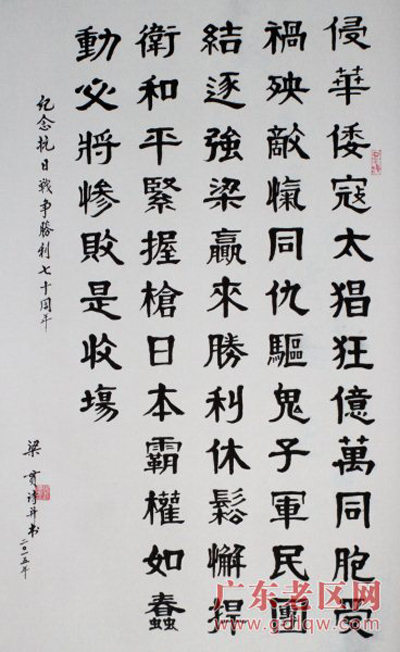 侵華倭寇太猖狂億萬同胞受
禍殃敵愾同仇驅鬼子軍民團
結逐強梁贏來勝利休鬆懈捍
衛和平緊握槍日本霸權如蠢
動必將慘敗是收塲
纪念抗日戰争勝利七十周年
梁 诗并书
二〇一五年
广东老区网
www.gdlqw.com